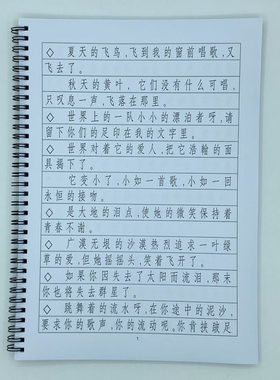 ◇ 夏天的飞鸟,飞到我的窗前唱歌,又
飞去了。
秋天的黄叶,它们没有什么可唱,
只叹息一声,飞落在那里。
◇ 世界上的一队小小的漂泊者呀,请
留下你们的足印在我的文字里。
◇ 世界对着它的爱人,把它浩翰的面
具揭下了。
它变小了,小如一首歌,小如一回
永恒的接吻。
◇ 是大地的泪点,使她的微笑保持着
青春不谢。
◇ 广漠无垠的沙漠热烈追求一叶绿
草的爱,但她摇摇头,笑着飞开了。
◇ 如果你因失去了太阳而流泪,那末
你也将失去群星了。
◇ 跳舞着的流水呀,在你途中的泥沙,
要求你的歌声,你的流动呢。你肯挟跛足
1